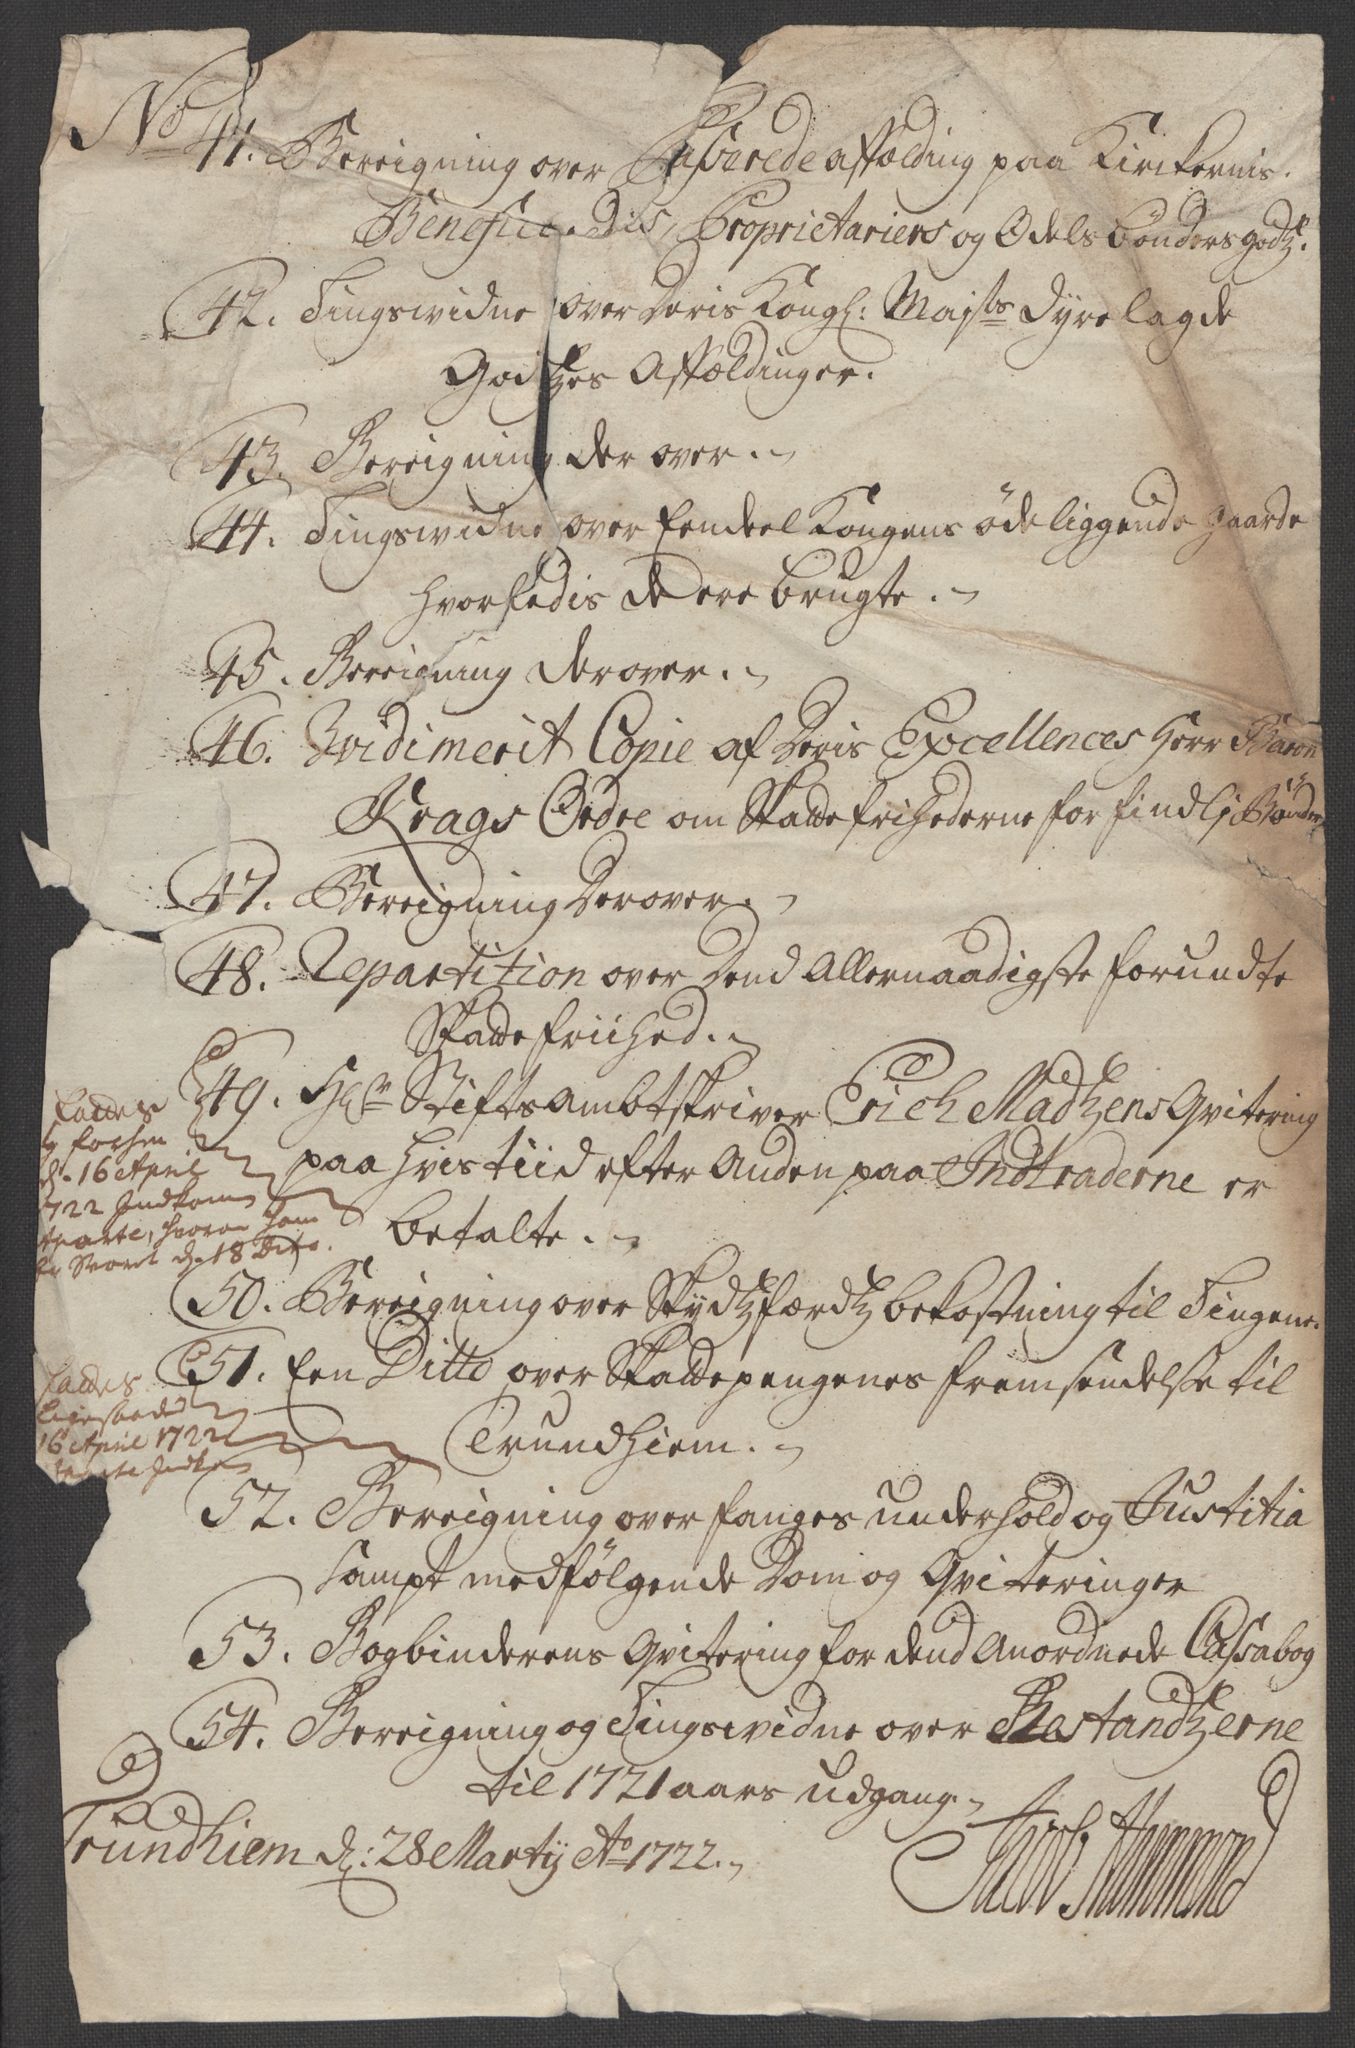 No 41. Bereigning over Casserede affælding paa Kirckernis.
Benefice.dis, Proprietariers og Odels bønders godz.
42. Tingswidne over Deris Kongl: Maj:ts Dyrelagde
Godtzes Affældinger.
43. Bereigning der over.
44. Tingswidne over Eendeel Kongens öde liggende gaarde
hvorledis de ere brugte.
45. Bereigning derover.
46. Vidimerit Copie af Deris Excellences Herr Baron
Krags Ordre om Skattefrihederne for findl: Bönder
47. Bereigning derover.
48. Repartition over Dend Allernaadigste forundte
Skattefriihed.
49. Hr: Stiftsambtskriver Erich Madtzens Qvitering
paa hvis tiid efter Anden paa Indtraderne er
betalte.
Fattes
d. 16 April
1722 Indkom
hvoren ham
d. 18 Dito.
50. Bereigning over Skydtzfærdtz bekostning til Tingene.
51. Een Ditto over Skattepengenes fremsendelse til
Trundhiem.
Fattes
Ligesaa
16 April 1722
52. Bereigning over fanges underhold og Justitia
sampt medfølgende Dom og Qviteringer
53. Bogbinderens Qvitering for dend Anordnede Cassabog
54. Bereigning og Tingswidne over Restandtzerne
til 1721 aars udgang.
Trundhiem d: 28 Martij Ao 1722.
Jacob Hammond